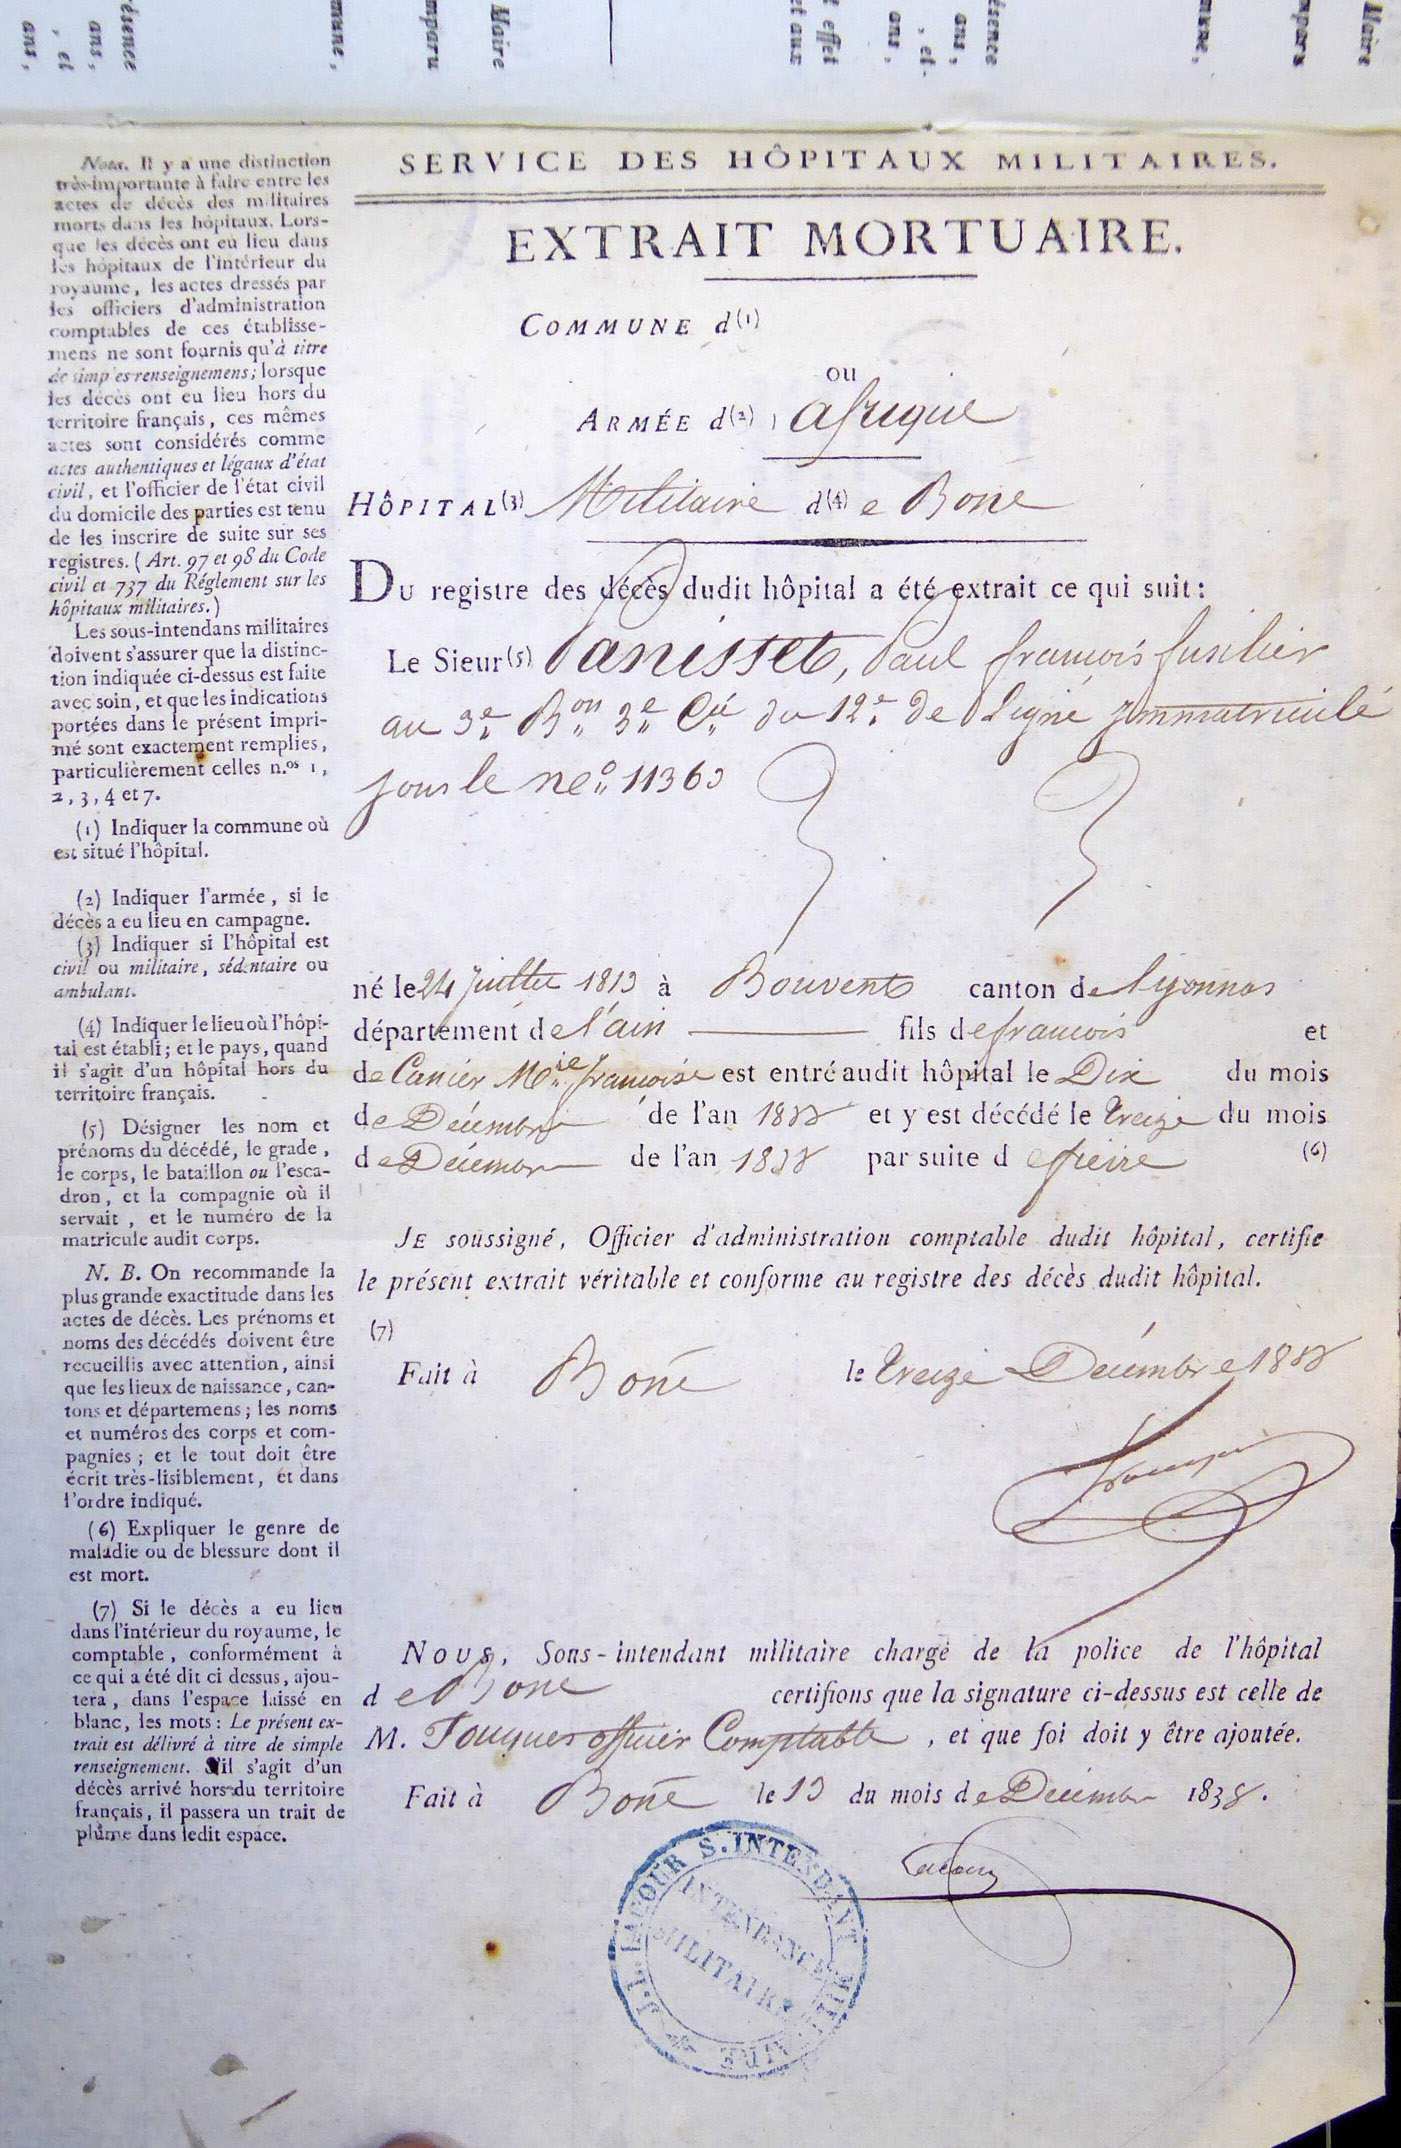 Maire
mparu
mune,
ésence
ans,
, et
ans,
Maire
mparu
mune,
ésence
ans,
, et
ans,
t effet
et aux
SERVICE DES HÔPITAUX MILITAIRES.
EXTRAIT MORTUAIRE.
COMMUNE d(1)
ou
ARMÉE d(2) afrique
HÔPITAL(3) Militaire d(4) e Bone
DU registre des décès dudit hôpital a été extrait ce qui suit :
Le Sieur (5) Panisset, Paul francois fusilier
au 3e Bon 3e Cie du 12e de Ligne immatriculé
sous le no 11363
né le 24 Juillet 1813 à Bouvent canton de Oyonnas
département de l'ain fils de francois et
de Canier Mie francoise est entré audit hôpital le Dix du mois
de Décembre de l'an 1838 et y est décédé le treize du mois
de Décembre de l'an 1838 par suite d e fievre (6)
JE soussigné, Officier d'administration comptable dudit hôpital, certifie
le présent extrait véritable et conforme au registre des décès dudit hôpital.
(7)
Fait à Bone le treize Décembre 1838
NOUS, Sous-intendant militaire chargé de la police de l'hôpital
d e Bone certifions que la signature ci-dessus est celle de
M. officier Comptable, et que foi doit y être ajoutée.
Fait à Bone le 13 du mois de Décembre 1838.
Lacour
J. L. LACOUR S. INTENDANT MILITAIRE
INTENDANCE
MILITAIRE
Nota. Il y a une distinction
très-importante à faire entre les
actes de décès des militaires
morts dans les hôpitaux. Lors-
que les décès ont eu lieu dans
les hôpitaux de l'intérieur du
royaume, les actes dressés par
les officiers d'administration
comptables de ces établisse-
mens ne sont fournis qu'à titre
de simples renseignemens; lorsque
les décès ont eu lieu hors du
territoire français, ces mêmes
actes sont considérés comme
actes authentiques et légaux d'état
civil, et l'officier de l'état civil
du domicile des parties est tenu
de les inscrire de suite sur ses
registres. (Art. 97 et 98 du Code
civil et 737 du Réglement sur les
hôpitaux militaires.)
Les sous-intendans militaires
doivent s'assurer que la distinc-
tion indiquée ci-dessus est faite
avec soin, et que les indications
portées dans le présent impri-
mé sont exactement remplies,
particulièrement celles n.os 1,
2, 3, 4 et 7.
(1) Indiquer la commune où
est situé l'hôpital.
(2) Indiquer l'armée, si le
décès a eu lieu en campagne.
(3) Indiquer si l'hôpital est
civil ou militaire, sédentaire ou
ambulant.
(4) Indiquer le lieu où l'hôpi-
tal est établi; et le pays, quand
il s'agit d'un hôpital hors du
territoire français.
(5) Désigner les nom et
prénoms du décédé, le grade,
le corps, le bataillon ou l'esca-
dron, et la compagnie où il
servait, et le numéro de la
matricule audit corps.
N. B. On recommande la
plus grande exactitude dans les
actes de décès. Les prénoms et
noms des décédés doivent être
recueillis avec attention, ainsi
que les lieux de naissance, can-
tons et départemens; les noms
et numéros des corps et com-
pagnies; et le tout doit être
écrit très-lisiblement, et dans
l'ordre indiqué.
(6) Expliquer le genre de
maladie ou de blessure dont il
est mort.
(7) Si le décès a eu lieu
dans l'intérieur du royaume, le
comptable, conformément à
ce qui a été dit ci dessus, ajou-
tera, dans l'espace laissé en
blanc, les mots : Le présent ex-
trait est délivré à titre de simple
renseignement. S'il s'agit d'un
décès arrivé hors du territoire
français, il passera un trait de
plume dans ledit espace.